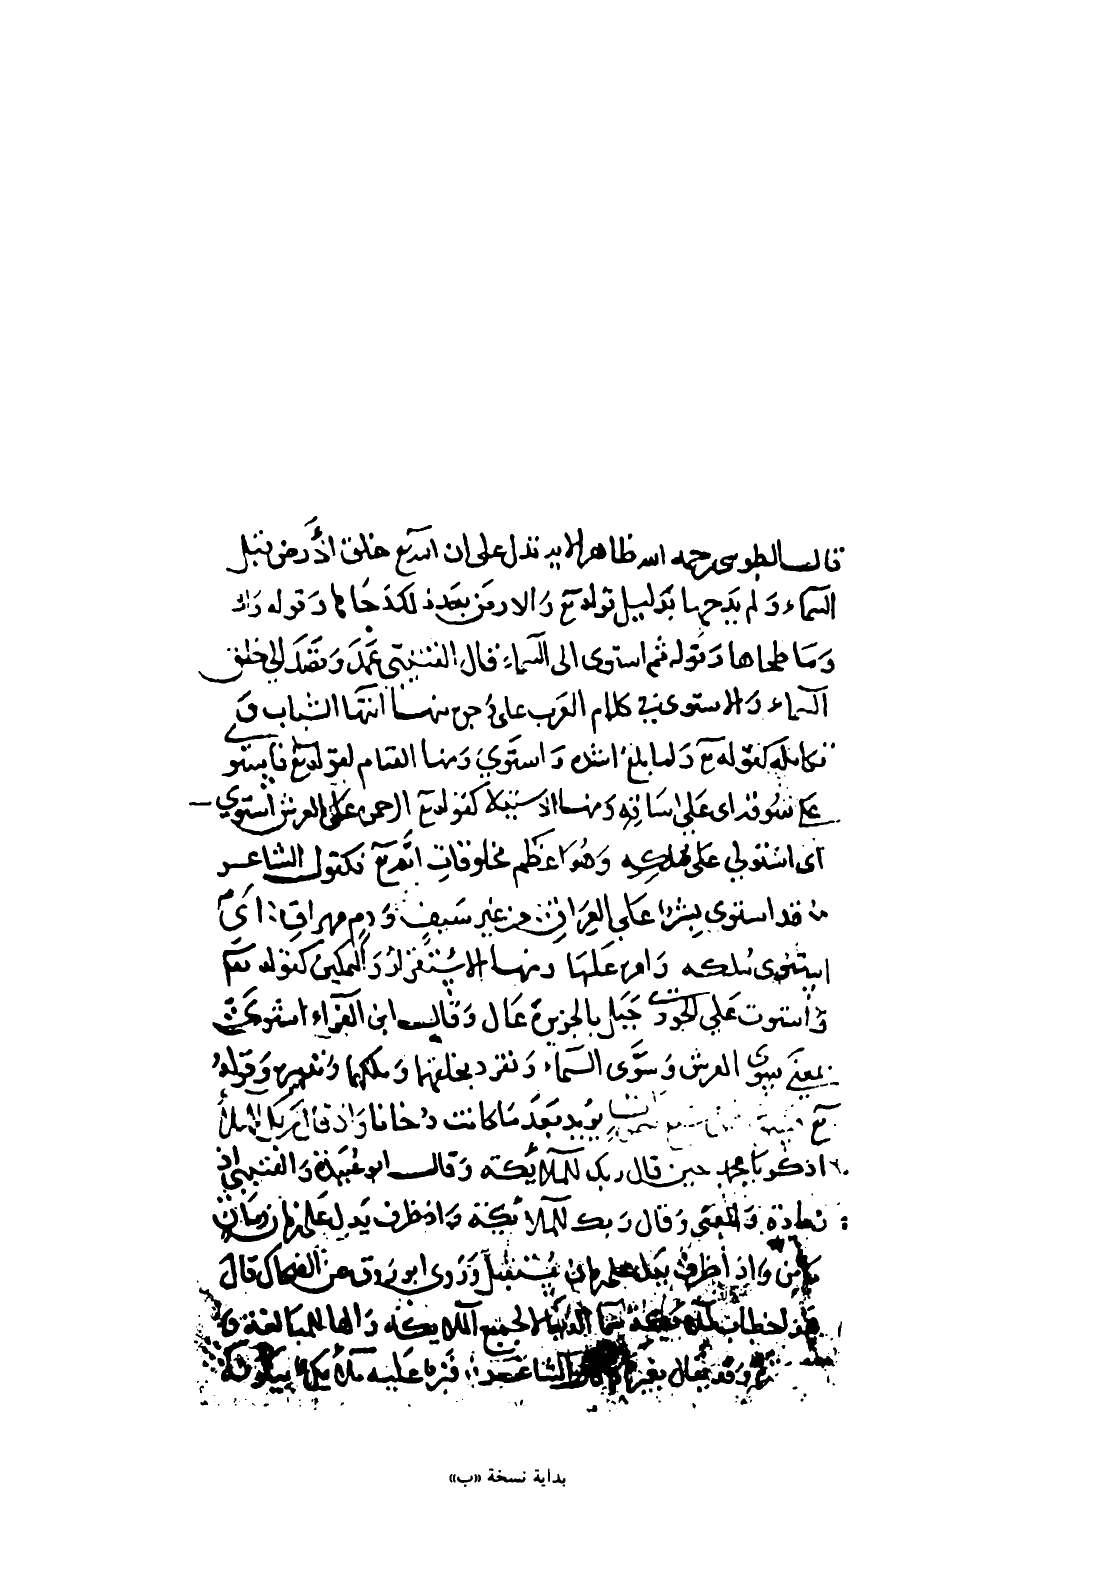 قال الطوسي رحمه الله ظاهر الاية تدل على ان الله تع خلق الأرض قبل
السماء و لم يدحها بدليل قوله تع والارض بعد ذلك دحاها وقوله
وما طحاها وقوله ثم استوى الى السماء قال القتيبي عمد وقصد الى خلق
السماء والاستوى في كلام العرب على وجوه منها انتها الشباب و
كقوله تع ولما بلغ اشده واستوى ومنها القيام لقوله تع فاستو
على سوقه اي على ساقه ومنها الاستيلا كقوله تع الرحمن على العرش استوي
اى استولي على ملكه وهو اعظم مخلوقات الله تع كقول الشاعر
قد استوى بشر على العراق من غير سيف ودم مهراق اى
استوى ملكه وامره عليها ومنها الاستقرار والتمكين كقوله تع
واستوت على الجودى جبل بالجزيرة عال وقال ابن الفراء استوى
بمعنى سوى العرش وسوى السماء وتفرد بخلقها وملكها وتدبيره وقوله
تع يريد بعد ما كانت دخانا واذ قال ربك للملا
اذكر يا محمد حين قال ربك للملائكته وقال ابو عبيدة والقتيبي اذ
زيادة والمعنى وقال ربك للملائكته واذ ظرف يدل على زمان
واذا ظرف يدل على زمان مستقبل وروى ابو روق عن الضحاك قال
هذا خطاب الجميع الملائكته والها للمبالغة
وقد يقال بغير الشاعر
بداية نسخة «ب»